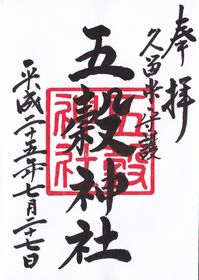 奉拝
久留米守護
五穀神社
五穀神社
平成二十五年七月二十七日